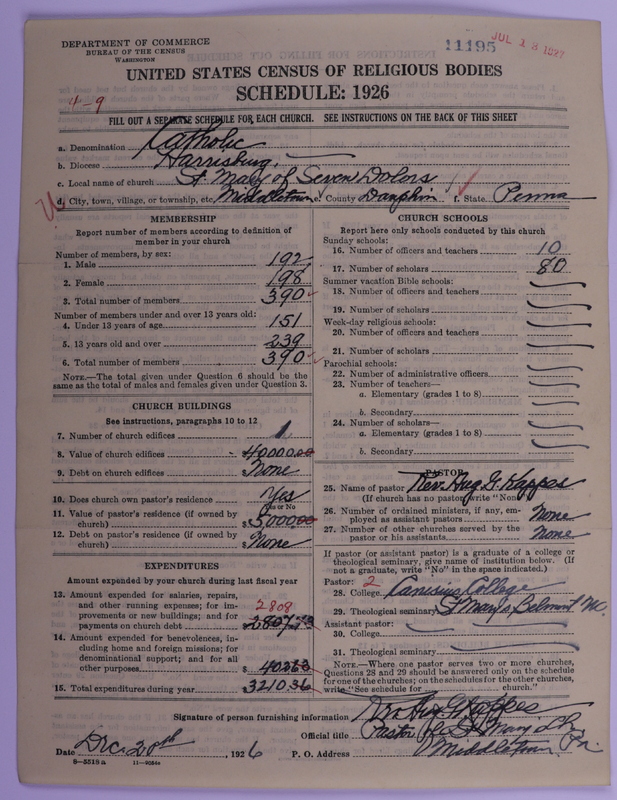 DEPARTMENT OF COMMERCE
BUREAU OF THE CENSUS
WASHINGTON
11195
JUL 13 1927
UNITED STATES CENSUS OF RELIGIOUS BODIES
SCHEDULE: 1926
4-9
FILL OUT A SEPARATE SCHEDULE FOR EACH CHURCH. SEE INSTRUCTIONS ON THE BACK OF THIS SHEET
a. Denomination Catholic
b. Diocese Harrisburg,
c. Local name of church St Mary of Seven Dolors
d. City, town, village, or township, etc. Middletown e. County Dauphin f. State Penna
MEMBERSHIP
Report number of members according to definition of
member in your church
Number of members, by sex:
1. Male 192
2. Female 198
3. Total number of members 390
Number of members under and over 13 years old:
4. Under 13 years of age 151
5. 13 years old and over 239
6. Total number of members 390
NOTE.—The total given under Question 6 should be the
same as the total of males and females given under Question 3.
CHURCH BUILDINGS
See instructions, paragraphs 10 to 12
7. Number of church edifices 1
8. Value of church edifices $40000.00
9. Debt on church edifices $None
10. Does church own pastor's residence Yes
Yes or No
11. Value of pastor's residence (if owned by
church) $5000.00
12. Debt on pastor's residence (if owned by
church) $None
EXPENDITURES
Amount expended by your church during last fiscal year
13. Amount expended for salaries, repairs,
and other running expenses; for im-
provements or new buildings; and for
payments on church debt 2808 $2807.73
14. Amount expended for benevolences, in-
cluding home and foreign missions; for
denominational support; and for all
other purposes $402.63
15. Total expenditures during year $3210.36
CHURCH SCHOOLS
Report here only schools conducted by this church
Sunday schools:
16. Number of officers and teachers 10
17. Number of scholars 80
Summer vacation Bible schools:
18. Number of officers and teachers
19. Number of scholars
Week-day religious schools:
20. Number of officers and teachers
21. Number of scholars
Parochial schools:
22. Number of administrative officers
23. Number of teachers—
a. Elementary (grades 1 to 8)
b. Secondary
24. Number of scholars—
a. Elementary (grades 1 to 8)
b. Secondary
PASTOR
25. Name of pastor Rev. Hug. G. Kappes
(If church has no pastor, write "None")
26. Number of ordained ministers, if any, em-
ployed as assistant pastors None
27. Number of other churches served by the
pastor or his assistants None
If pastor (or assistant pastor) is a graduate of a college or
theological seminary, give name of institution below. (If
not a graduate, write "No" in the space indicated.)
Pastor: 2
28. College Canisius College
29. Theological seminary St Mary's Belmont NC.
Assistant pastor:
30. College
31. Theological seminary
NOTE.—Where one pastor serves two or more churches,
Questions 28 and 29 should be answered only on the schedule
for one of the churches; on the schedules for the other churches,
write "See schedule for church."
Signature of person furnishing information Rev Hug. G Kappes
Official title Pastor St Mary
Date Dec 20th, 1926 P. O. Address Middletown Pa.
8—5518a 11—9054a